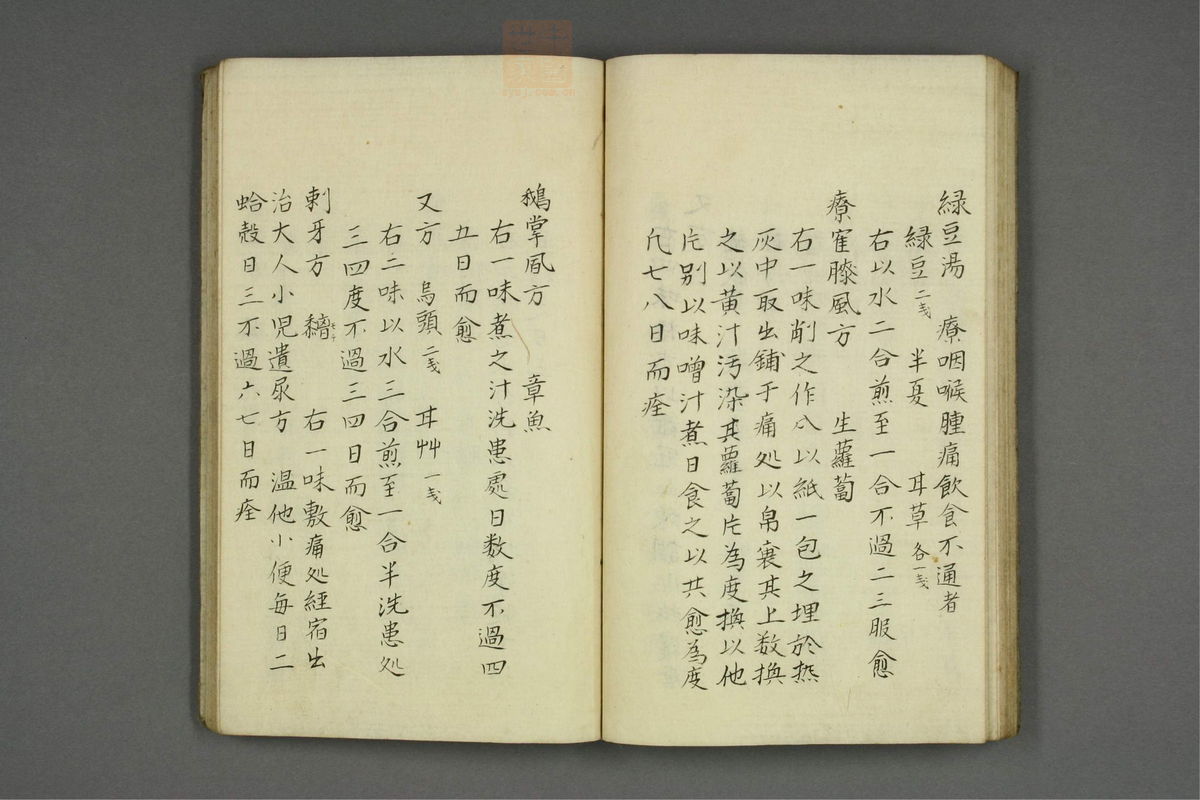 綠豆湯　療咽喉腫痛飲食不通者
綠豆二戔　半夏　耳草各一戔
右以水二合煎至一合不過二三服愈
療寉膝風方　生蘿蔔
右一味削之作八以紙一包之埋於热
灰中取出鋪于痛処以帛褁其上数换
之以黃汁汚染其蘿蔔片為度换以他
片別以味噌汁煮日食之以共愈為度
凢七八日而痊
鵝掌風方　章魚
右一味煮之汁洗患處日数度不過四
五日而愈
又方　烏頭二戔　耳艸一戔
右二味以水三合煎至一合半洗患処
三四度不過三四日而愈
刺牙方　右一味敷痛処經宿出
治大人小児遺尿方　温他小便每日二
蛤殼日三不過六七日而痊